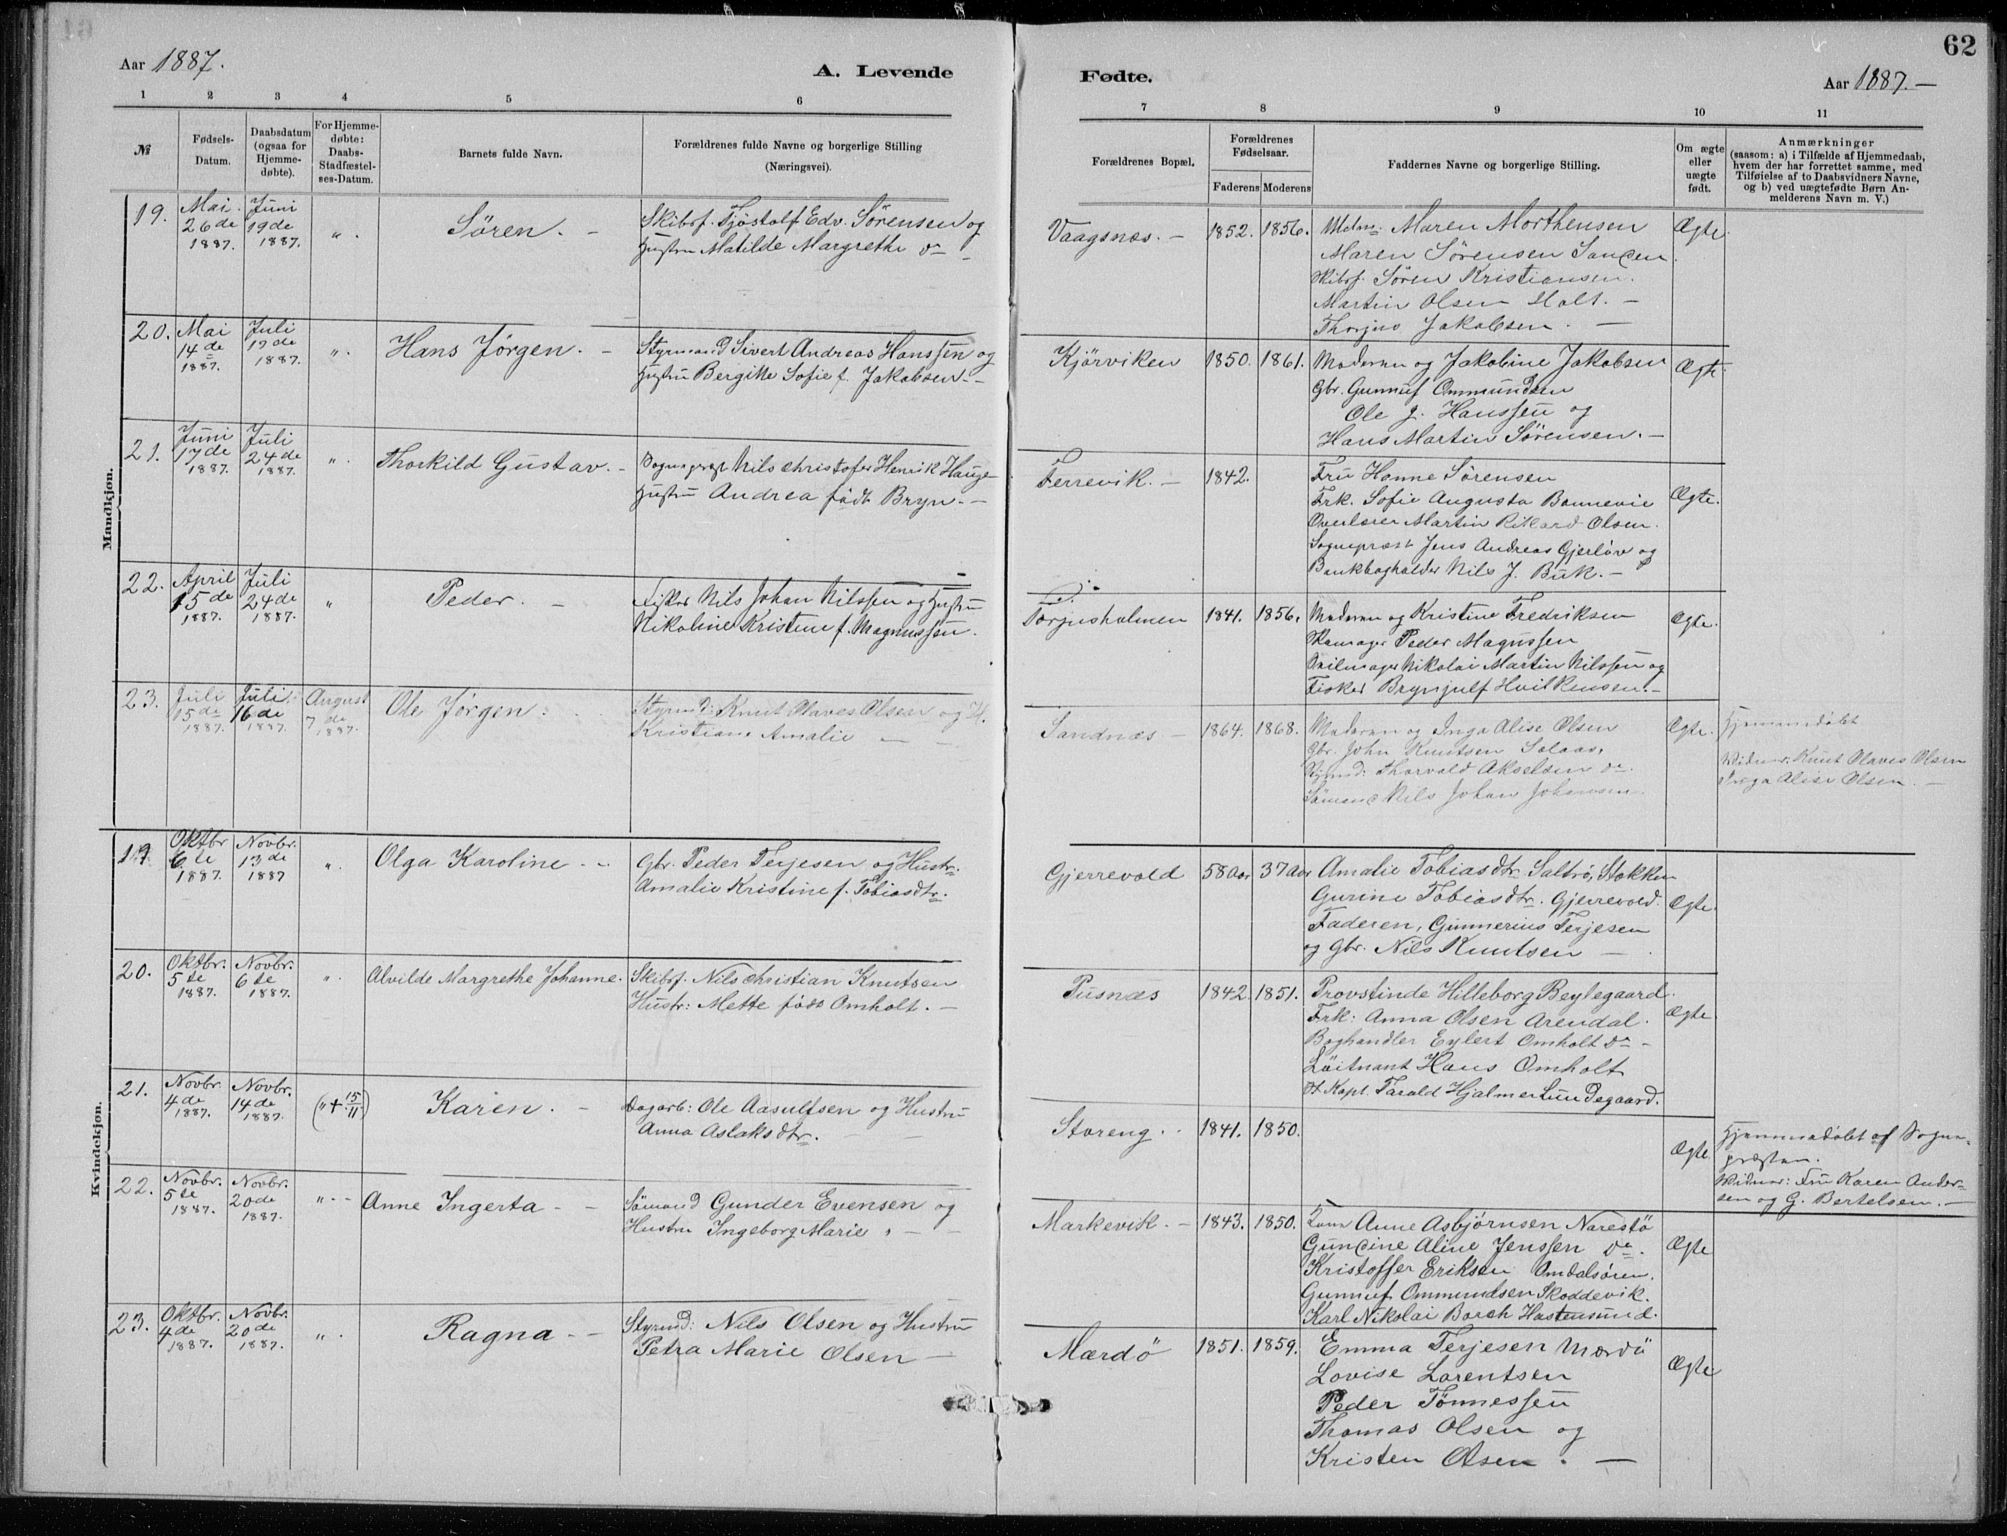 Aar 1887.
A. Levende
Fødte.
Aar 1887. —
62
1 2 3 4 5 6 7 8 9 10 11
№
Fødsels-
Datum.
Daabsdatum
(ogsaa for
Hjemme-
døbte).
For Hjemme-
døbte:
Daabs-
Stadfæstel-
ses-Datum.
Barnets fulde Navn.
Forældrenes fulde Navne og borgerlige Stilling
(Næringsvei).
Forældrenes Bopæl.
Forældrenes
Fødselsaar.
Faderens Moderens
Faddernes Navne og borgerlige Stilling.
Om ægte
eller
uægte
født.
Anmærkninger
(saasom: a) i Tilfælde af Hjemmedaab,
hvem der har forrettet samme, med
Tilføielse af to Daabsvidners Navne,
og b) ved uægtefødte Børn An-
melderens Navn m. V.)
Mandkjøn.
19.
Mai
26de
1887.
Juni
19de
1887.
".
Søren. —
Skibsf. Tjøstolf Edv. Sørensen og
Hustru Matilde Margrethe do —
Vaagsnæs. —
1852. 1856.
Maren Morthensen
Maren Sørensen Sanden
Skibsf. Søren Kristiansen.
Martin Olsen Holt. —
Thorjus Jakobsen. —
Ægte.
20.
Mai
14de
1887.
Juli
17de
1887.
".
Hans Jørgen. —
Styrmand Sivert Andreas Hanssen og
Hustru Bergitte Sofie f. Jakobsen. —
Kjørviken
1850. 1861.
Moderen og Jakobine Jakobsen
Gbr. Gunnuf Ommundsen
Ole J. Hanssen og
Hans Martin Sørensen. —
Ægte
21.
Juni
17de
1887.
Juli
24de
1887.
".
Thorkild Gustav. —
Sognepræst Nils Christofer Henrik Hauge
Hustru Andrea født Bryn. —
Ferrevik. —
1842.
Fru Hanne Sørensen
Frk. Sofie Augusta Bonnevie
Overlærer Martin Rikard Olsen.
Sognepræst Jens Andreas Gjerløv og
Bankbogholder Nils J. Buk. —
Ægte.
22.
April
15de
1887.
Juli
24de
1887.
"
Peder. —
Fisker Nils Johan Nilssen og Hustru
Nikoline Kristine f. Magnussen.
Torjusholmen
1841. 1856.
Moderen og Kristine Fredriksen
Skomager Peder Magnssen
Seilmager Nikolai Martin Nilssen og
Fisker Brynjulf Hvilkensen. —
Ægte.
23.
Juli
15de
1887.
Juli
16de
1887.
August
7de
1887.
Ole Jørgen.
Styrmd: Knut Olaves Olsen og H.
Kristiane Amalie — —
Sandnæs —
1864. 1868.
Moderen og Inga Alise Olsen
Gbr. John Knutsen Solaas,
Styrmd: Thorvald Akselsen do.
Sømand Nils Johan Johannsen.
Ægte.
Hjemmedøbt
Vidner: Knut Olaves Olsen
Inga Alise Olsen. —
Kvindekjøn.
19.
Oktbr
6te
1887.
Novbr.
13de
1887
".
Olga Karoline. —
Gbr. Peder Terjesen og Hustr.
Amalie Kristine f. Tobiasdtr.
Gjerrevold
58 Aar 37 Aar
Amalie Tobiasdtr. Saltrø, Stokken
Gurine Tobiasdtr. Gjerrevold.
Faderen, Gunnerius Terjesen
og Gbr. Nils Knutsen —
Ægte.
20.
Oktbr.
5te
1887.
Novbr.
6te
1887.
".
Alvilde Margrethe Johanne.
Skibsf. Nils Christian Knutsen
Hustr: Mette født Omholt. —
Pusnæs
1842. 1851.
Provstinde Hilleborg Beylegaard.
Frk: Anna Olsen Arendal.
Boghandler Eylert Omholt do —
Løitnant Hans Omholt
og Kapt. Tarald Hjalmer Lundegaard.
Ægte.
21.
Novbr.
4de
1887.
Novbr.
14de
1887.
(" + 15/11)
Karen. —
Dagarb: Ole Aasultsen og Hustru
Anna Aslaksdtr. — —
Storeng.
1841. 1850.
Ægte
Hjemmedøbt af Sogne-
præsten.
Vidner: Fru Karen Ander-
sen og G. Bertelsen. —
22.
Novbr.
5te
1887.
Novbr.
20de
1887.
" —
Anne Ingerta — —
Sømand Gunder Evensen og
Hustru Ingeborg Marie " — —
Markevik. —
1843. 1850.
Anne Asbjørnsen Narestø
Gundine Aline Jenssen do.
Kristoffer Eriksen Omdalsøren.
Gunnuf Ommundsen Skoddevik.
Karl Nikolai Borch Hastensund.
Ægte
23.
Oktbr.
4de
1887.
Novbr.
20de
1887.
".
Ragna — —
Styrmd: Nils Olsen og Hustru
Petra Marie Olsen —
Mærdö
1851. 1859.
Emma Terjesen Mærdö
Lovise Lorentsen
Peder Tönnessen
Thomas Olsen og
Kristen Olsen. —
Ægte